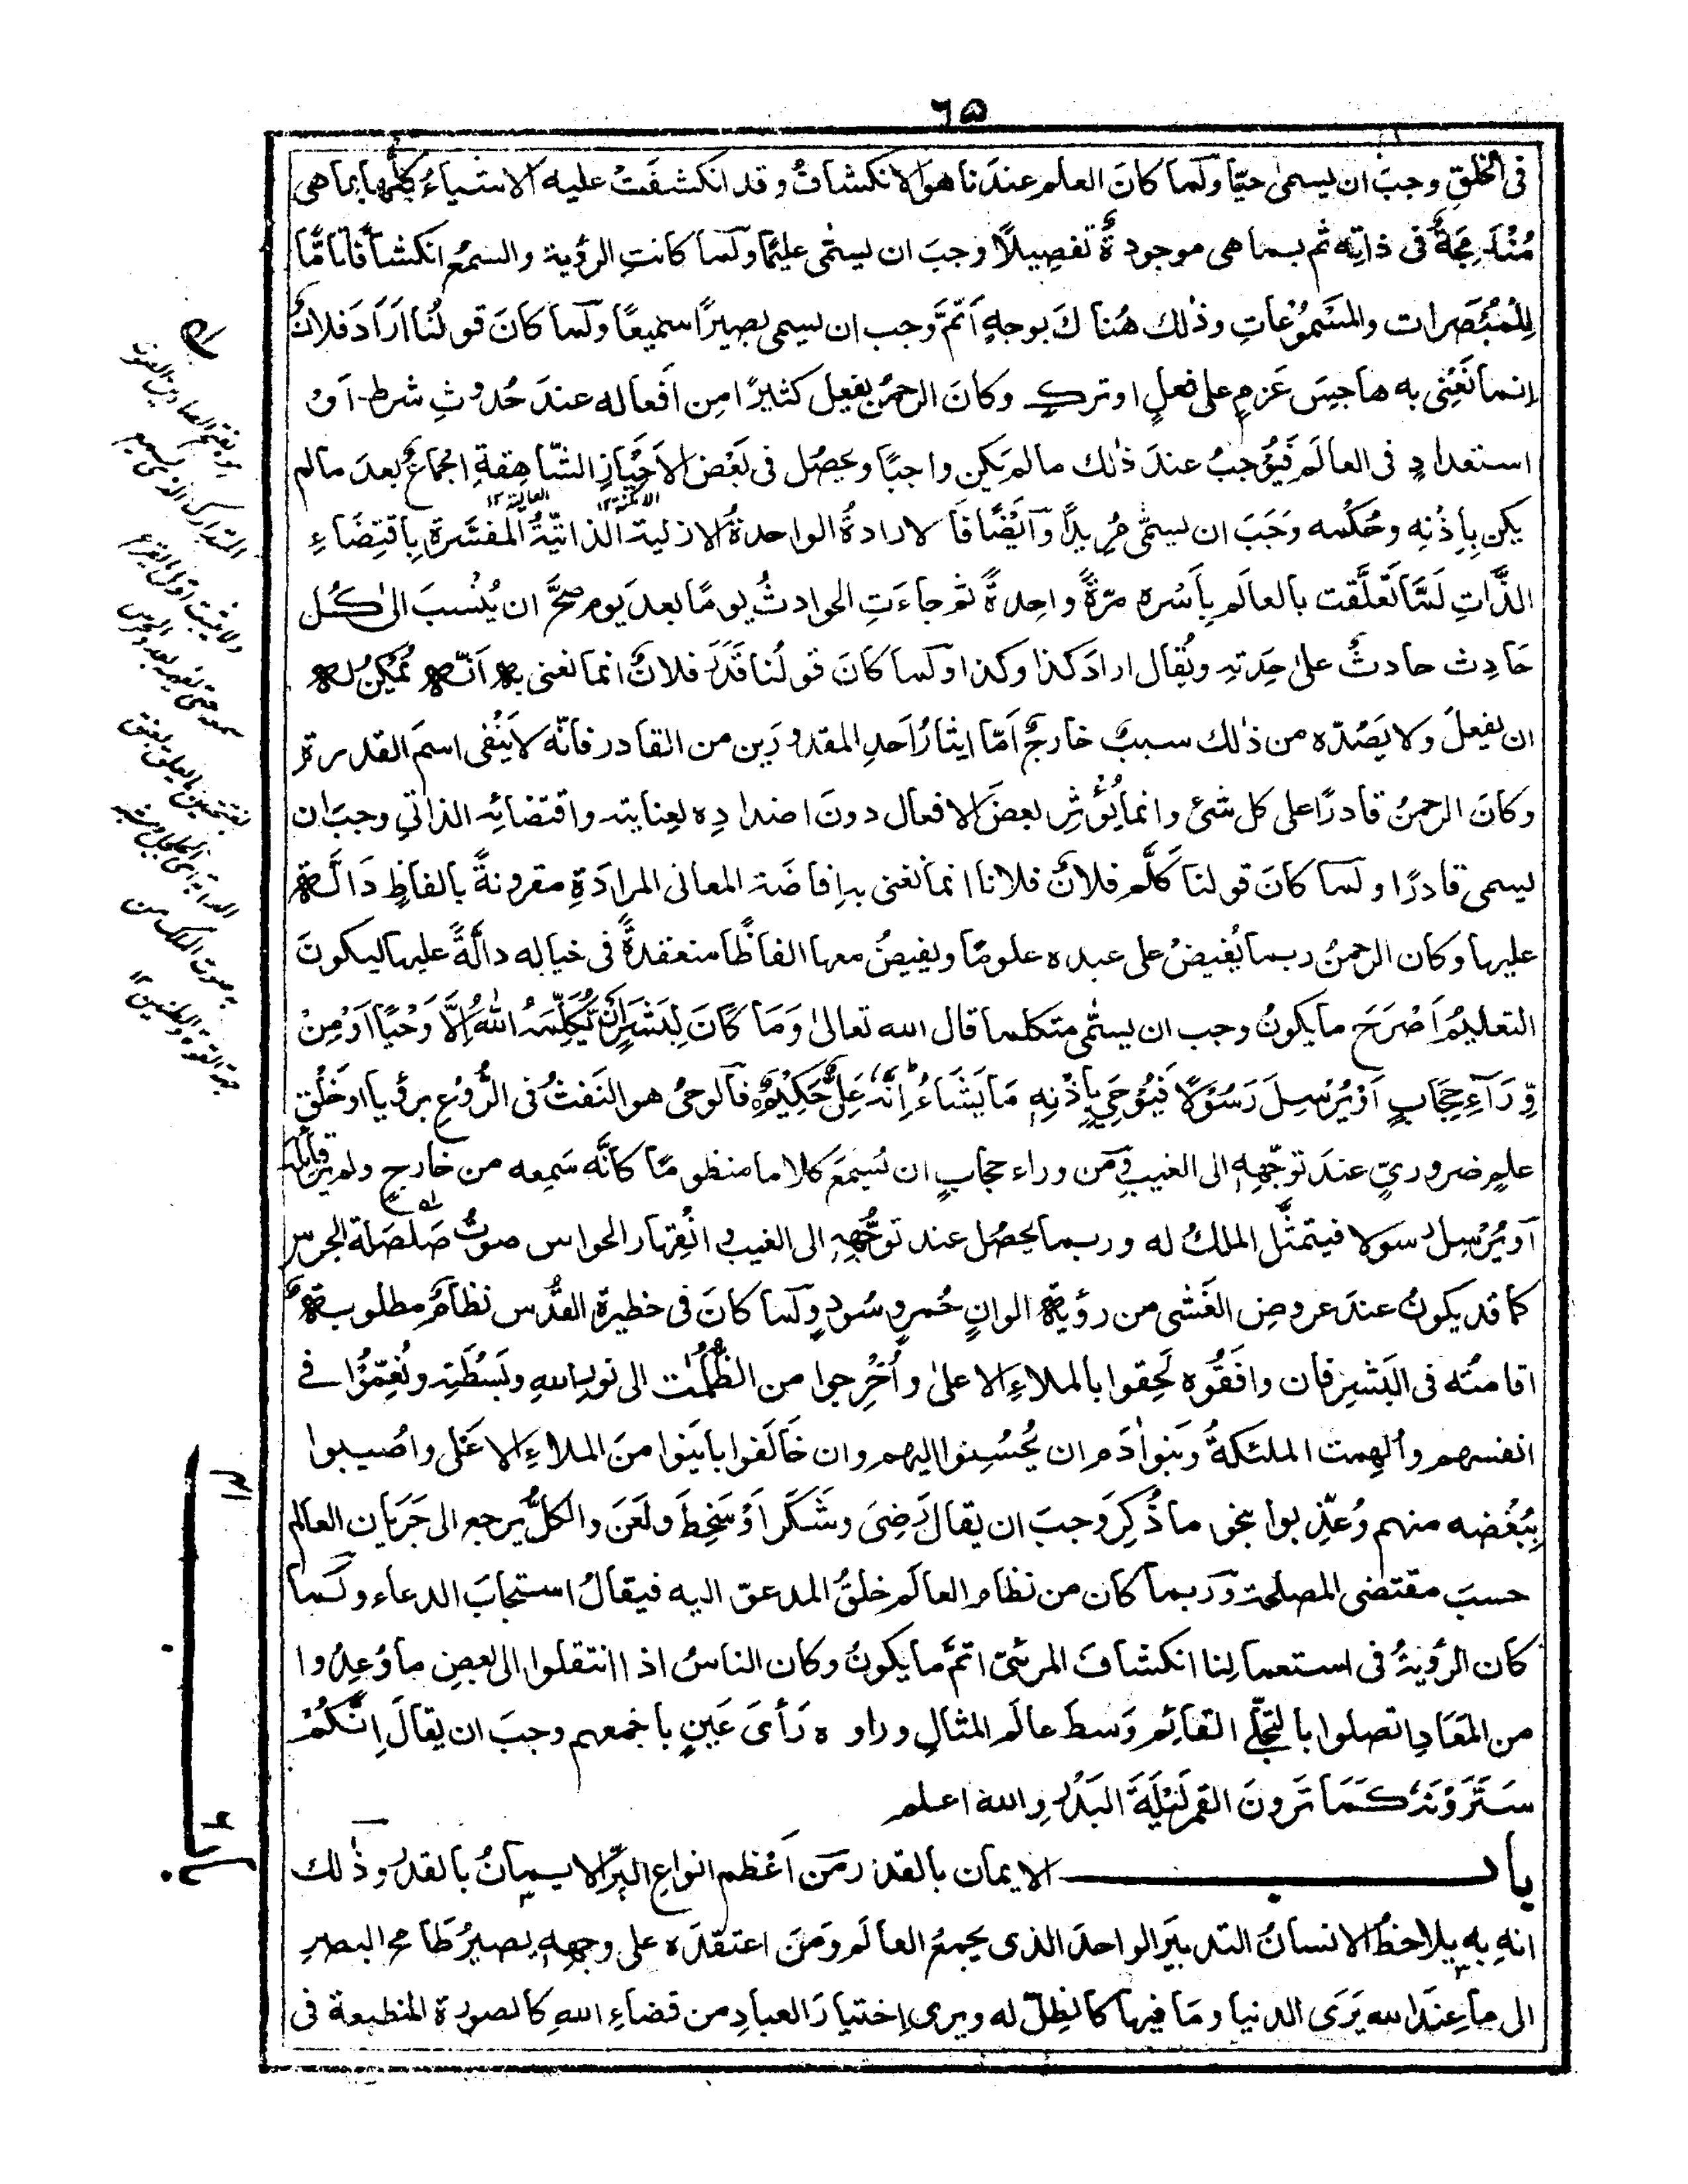 ٦٥
فى الخلق وجبَ ان يسمى حيًّا ولَما كانَ العلم عندَنا هوالانكشافُ وقد انكشفَتْ عليه الاشياءُ كلُّها بما هى
مُنْدَمِجَةٌ فى ذاتِه ثم بما هى موجودةٌ تفصِيلاً وجبَ ان يسمّى عليمًا ولما كانتِ الرؤية والسمعُ انكشافًا تامًّا
لِلْمُبْصَرات والمَسْموُعاتِ وذٰلك هُناكَ بوجهٍ اَتمَّ وجب ان يسمى بصيرًا سميعًا ولَما كانَ قولُنا اَرَادَ فلانٌ
إنما نَعْنِى به هاجِسَ عَزمٍ على فعلٍ اوتركٍ وكانَ الرحمٰن يفعل كثيرًا مِن اَفعاله عندَ حُدوثِ شرط اَوْ
استعدادٍ فى العالَم فَيُوْجبُ عندَ ذٰلك مالم يَكن واجبًا ويحصُل فى بَعْض الاَحْيَازِ الشّاهِقةِ اجماعٌ بعدَ مالم
الامكنة١٢ العالية١٢
يكن بِاِذْنِه وحُكمه وَجَبَ ان يسمّى مُريدًا وَاَيْضًا فَالارادةُ الواحدةُ الازلية الذاتيّةُ المفسَّرةُ بِاقتِضَاءِ
الذَّاتِ لَمَّا تَعلَّقت بالعالَم بِاَسْره مرّةً واحِدةً ثم جاءَتِ الحوادثُ يومًا بعدَ يوم صحَّ ان يُنْسبَ الىٰ كُل
حَادِث حادثٌ علىٰ حِدتِه ويُقال ارادَ كذا وكذا ولَما كانَ قولُنا قَدَرَ فلانٌ انما نعنى به اَنّه يُمْكِنُ له
ان يفعلَ ولا يَصُدّه من ذٰلك سببٌ خارجٌ اَمّا ايثارُ اَحدِ المقدورَين من القادر فانّه لا يَنْفى اسمَ القدرة
وكانَ الرحمنُ قادرًا على كل شئ وانما يُؤثِر بعضَ الافعال دونَ اضدادِه لعِنايته واقتضائِه الذاتي وجبَ ان
يسمى قادرًا ولما كانَ قولنا كَلَّم فلانٌ فلانا انما نعنى به اِفاضَة المعانى المرادَةِ مقرونةً بالفاظٍ دَالَّة
عليها وكان الرحمنُ ربما يُفيضُ على عبده علومًا ويفيضُ معها الفاظًا منعقدةً فى خياله دالَّةً عليها ليكونَ
التعليمُ اَصْرَحَ مايكونُ وجب ان يسمّى متكلما قال الله تعالىٰ وَمَا كَانَ لِبَشَرٍ اَنْ يُّكَلِّمَهُ اللّٰهُ اِلَّا وَحْيًا اَوْ مِنْ
وَّرَآءِ حِجَابٍ اَوْ يُرْسِلَ رَسُوْلًا فَيُوْحِيَ بِاِذْنِهٖ مَا يَشَاءُ ط اِنَّهٗ عَلِيٌّ حَكِيْمٌ فالوحىُ هو النَفثُ فى الرُّوْعِ برؤيا او خَلْقِ
علمٍ ضرورىٍّ عندَ توجّهِه الى الغيب وَمن وراء حجابٍ ان يُسْمَعَ كلاما منظومًا كانَّه سَمِعه من خارجٍ ولم يرَ قائلَه
اَو يُرْسِل رسولا فيتمثَّل الملكُ له وربما يحصُل عند تَوجُّهِه الى الغيب وانْقِهار الحواس صوتُ صَلصَلة الجرس
كما قد يكونُ عندَ عروضِ الغَشى من رؤية الوانٍ حُمرٍ وسُودٍ ولَما كانَ فى حظيرة القُدس نظامٌ مطلوبةٌ
اقامتُه فى البَشَرِ فان وافَقُوه لَحِقوا بالملاءِ الاعلىٰ واُخْرِجوا من الظُلُمٰت الى نورِ اللهِ وبَسْطَتِه ونُعِّمُوْا فے
انفسهم واُلهِمت الملٰئكةُ وبَنواٰدَم ان يُحْسِنوا اليهم وان خَالَفوا بايَنوا منَ الملاءِ الاعْلى واُصيبوا
بِبُغْضه منهم وُعذِّبوا بنحوِ ماذُكِرَ وَجبَ ان يقالَ رَضِىَ وشَكَرَ اَوْ سَخِطَ ولَعَنَ والكلُّ يرجع الى جَرَيان العالم
حسبَ مقتضى المصلحة وربما كان من نظام العالَم خلقُ المدعوّ اليه فيقالُ استجابَ الدعاء ولَما
كان الرؤيةُ فى استعمالِنا انكشافَ المرئىّ اتمَّ مايكونُ وكان الناسُ اذا انتقلوا الى بعضِ ماوُعِدُوا
من المعَادِ اتصلوا بالتجلّى القائِم وَسطَ عالَم المثالِ وراوه رَأىَ عَينٍ باجمعهم وجبَ ان يقالَ اِنَّكُمْ
سَتَرَوْنَهٗ كَمَا تَرونَ القمرَ لَيْلَةَ البَدْرِ والله اعلم
باب الايمان بالقدر مَن اَعْظم انواعِ البِرِّ الايمانُ بالقدر وذٰلك
انه به يلاحظُ الانسانُ التدبيرَ الواحدَ الذى يجمعُ العالَم ومَن اعتقدَه على وجهِه يصيرُ طَامح البصرِ
الى ماعِندَ الله يَرَى الدنيا ومَا فيها كالظِلّ له ويرى اِختيارَ العبادِ من قضاءِ اللهِ كالصورة المنطبعة فى